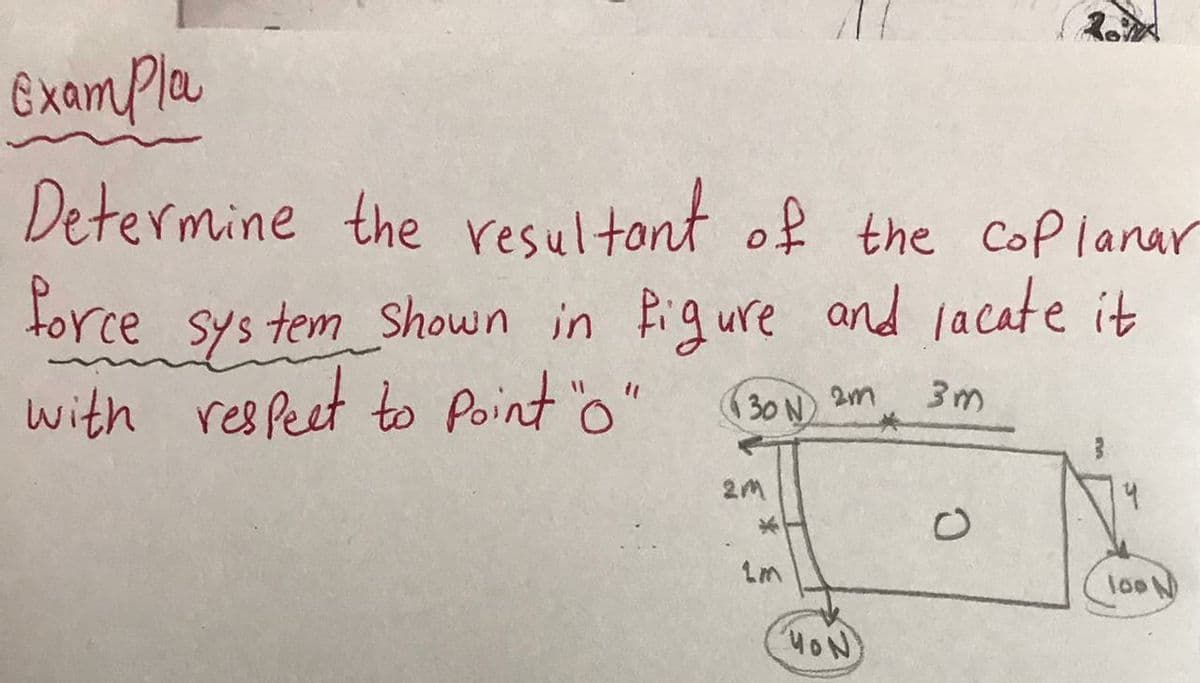 Exampla
Determine the resultant of the coplanar
force system shown in figure and lacate it
with respect to point "o"
130N 2m 3m
3
2m
4
O
1m
100N
40N